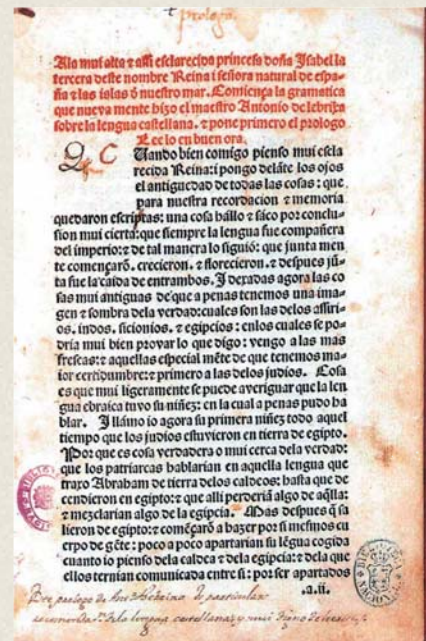 prologo.
Ala mui alta ⁊ assi esclarecida princesa doña Isabel la
tercera deste nombre Reina i señora natural de espa-
ña ⁊ las islas ð nuestro mar. Comiença la gramatica
que nueva mente hizo el maestro Antonio de lebrixa
sobre la lengua castellana. ⁊ pone primero el prologo
Lee lo en buen ora.
C Uando bien comigo pienso mui escla
recida Reina: i pongo delãte los ojos
el antiguedad de todas las cosas: que
para nuestra recordacion ⁊ memoria
quedaron escriptas: una cosa hállo ⁊ sáco por conclu-
sion mui cierta: que siempre la lengua fue compañera
del imperio: ⁊ de tal manera lo siguió: que junta men
te començarõ. crecieron. ⁊ florecieron. ⁊ despues jũ-
ta fue la caida de entrambos. I dexadas agora las co
sas mui antiguas de que a penas tenemos una ima-
gen ⁊ sombra dela verdad: cuales son las delos assiri-
os. indos. sicionios. ⁊ egipcios: enlos cuales se po-
dria mui bien provar lo que digo: vengo a las mas
frescas: ⁊ aquellas especial mẽte de que tenemos ma-
ior certidumbre: ⁊ primero a las delos judios. Cosa
es que mui ligeramente se puede averiguar que la len
gua ebraica tuvo su niñez: en la cual a penas pudo ha
blar. I llámo io agora su primera niñez todo aquel
tiempo que los judios estuvieron en tierra de egipto.
Por que es cosa verdadera o mui cerca dela verdad:
que los patriarcas hablarian en aquella lengua que
traxo Abraham de tierra delos caldeos: hasta que de
cendieron en egipto: ⁊ que alli perderiã algo de aq̃lla:
⁊ mezclarian algo de la egipcia. Mas despues q̃ sa
lieron de egipto: ⁊ comẽçarõ a hazer por si mesmos cu
erpo de gẽte: poco a poco apartarian su lẽgua cogida
cuanto io pienso dela caldea ⁊ dela egipcia: ⁊ dela que
ellos ternian comunicada entre si: por ser apartados
.a.ii.
prologo de de particular
dela lengua castellana, y mui